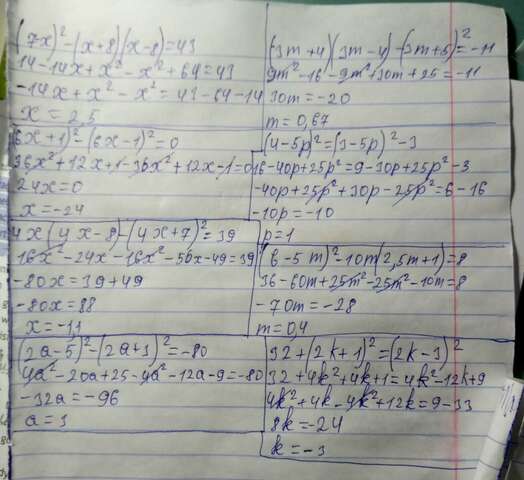 (7x)²-(x+8)(x-8)=43
14-14x+x²-x²+64=43
-14x+x²-x²=43-64-14
x=2,5
(6x+1)²-(6x-1)²=0
36x²+12x+1-36x²+12x-1=0
24x=0
x=-24
4x(4x-8)-(4x+7)²=39
16x²-24x-16x²-56x-49=39
-80x=39+49
-80x=88
x=-1,1
(2a-5)²-(2a+3)²=-80
4a²-20a+25-4a²-12a-9=-80
-32a=-96
a=3
(3m+4)(3m-4)-(3m+5)²=-11
9m²-16-9m²+30m+25=-11
30m=-20
m=0,67
(4-5p)²=(3-5p)²-3
16-40p+25p²=9-30p+25p²-3
-40p+25p²+30p-25p²=6-16
-10p=-10
p=1
(6-5m)²-10m(2,5m+1)=8
36-60m+25m²-25m²-10m=8
-70m=-28
m=0,4
32+(2k+1)²=(2k-3)²
32+4k²+4k+1=4k²-12k+9
4k²+4k-4k²+12k=9-33
8k=-24
k=-3